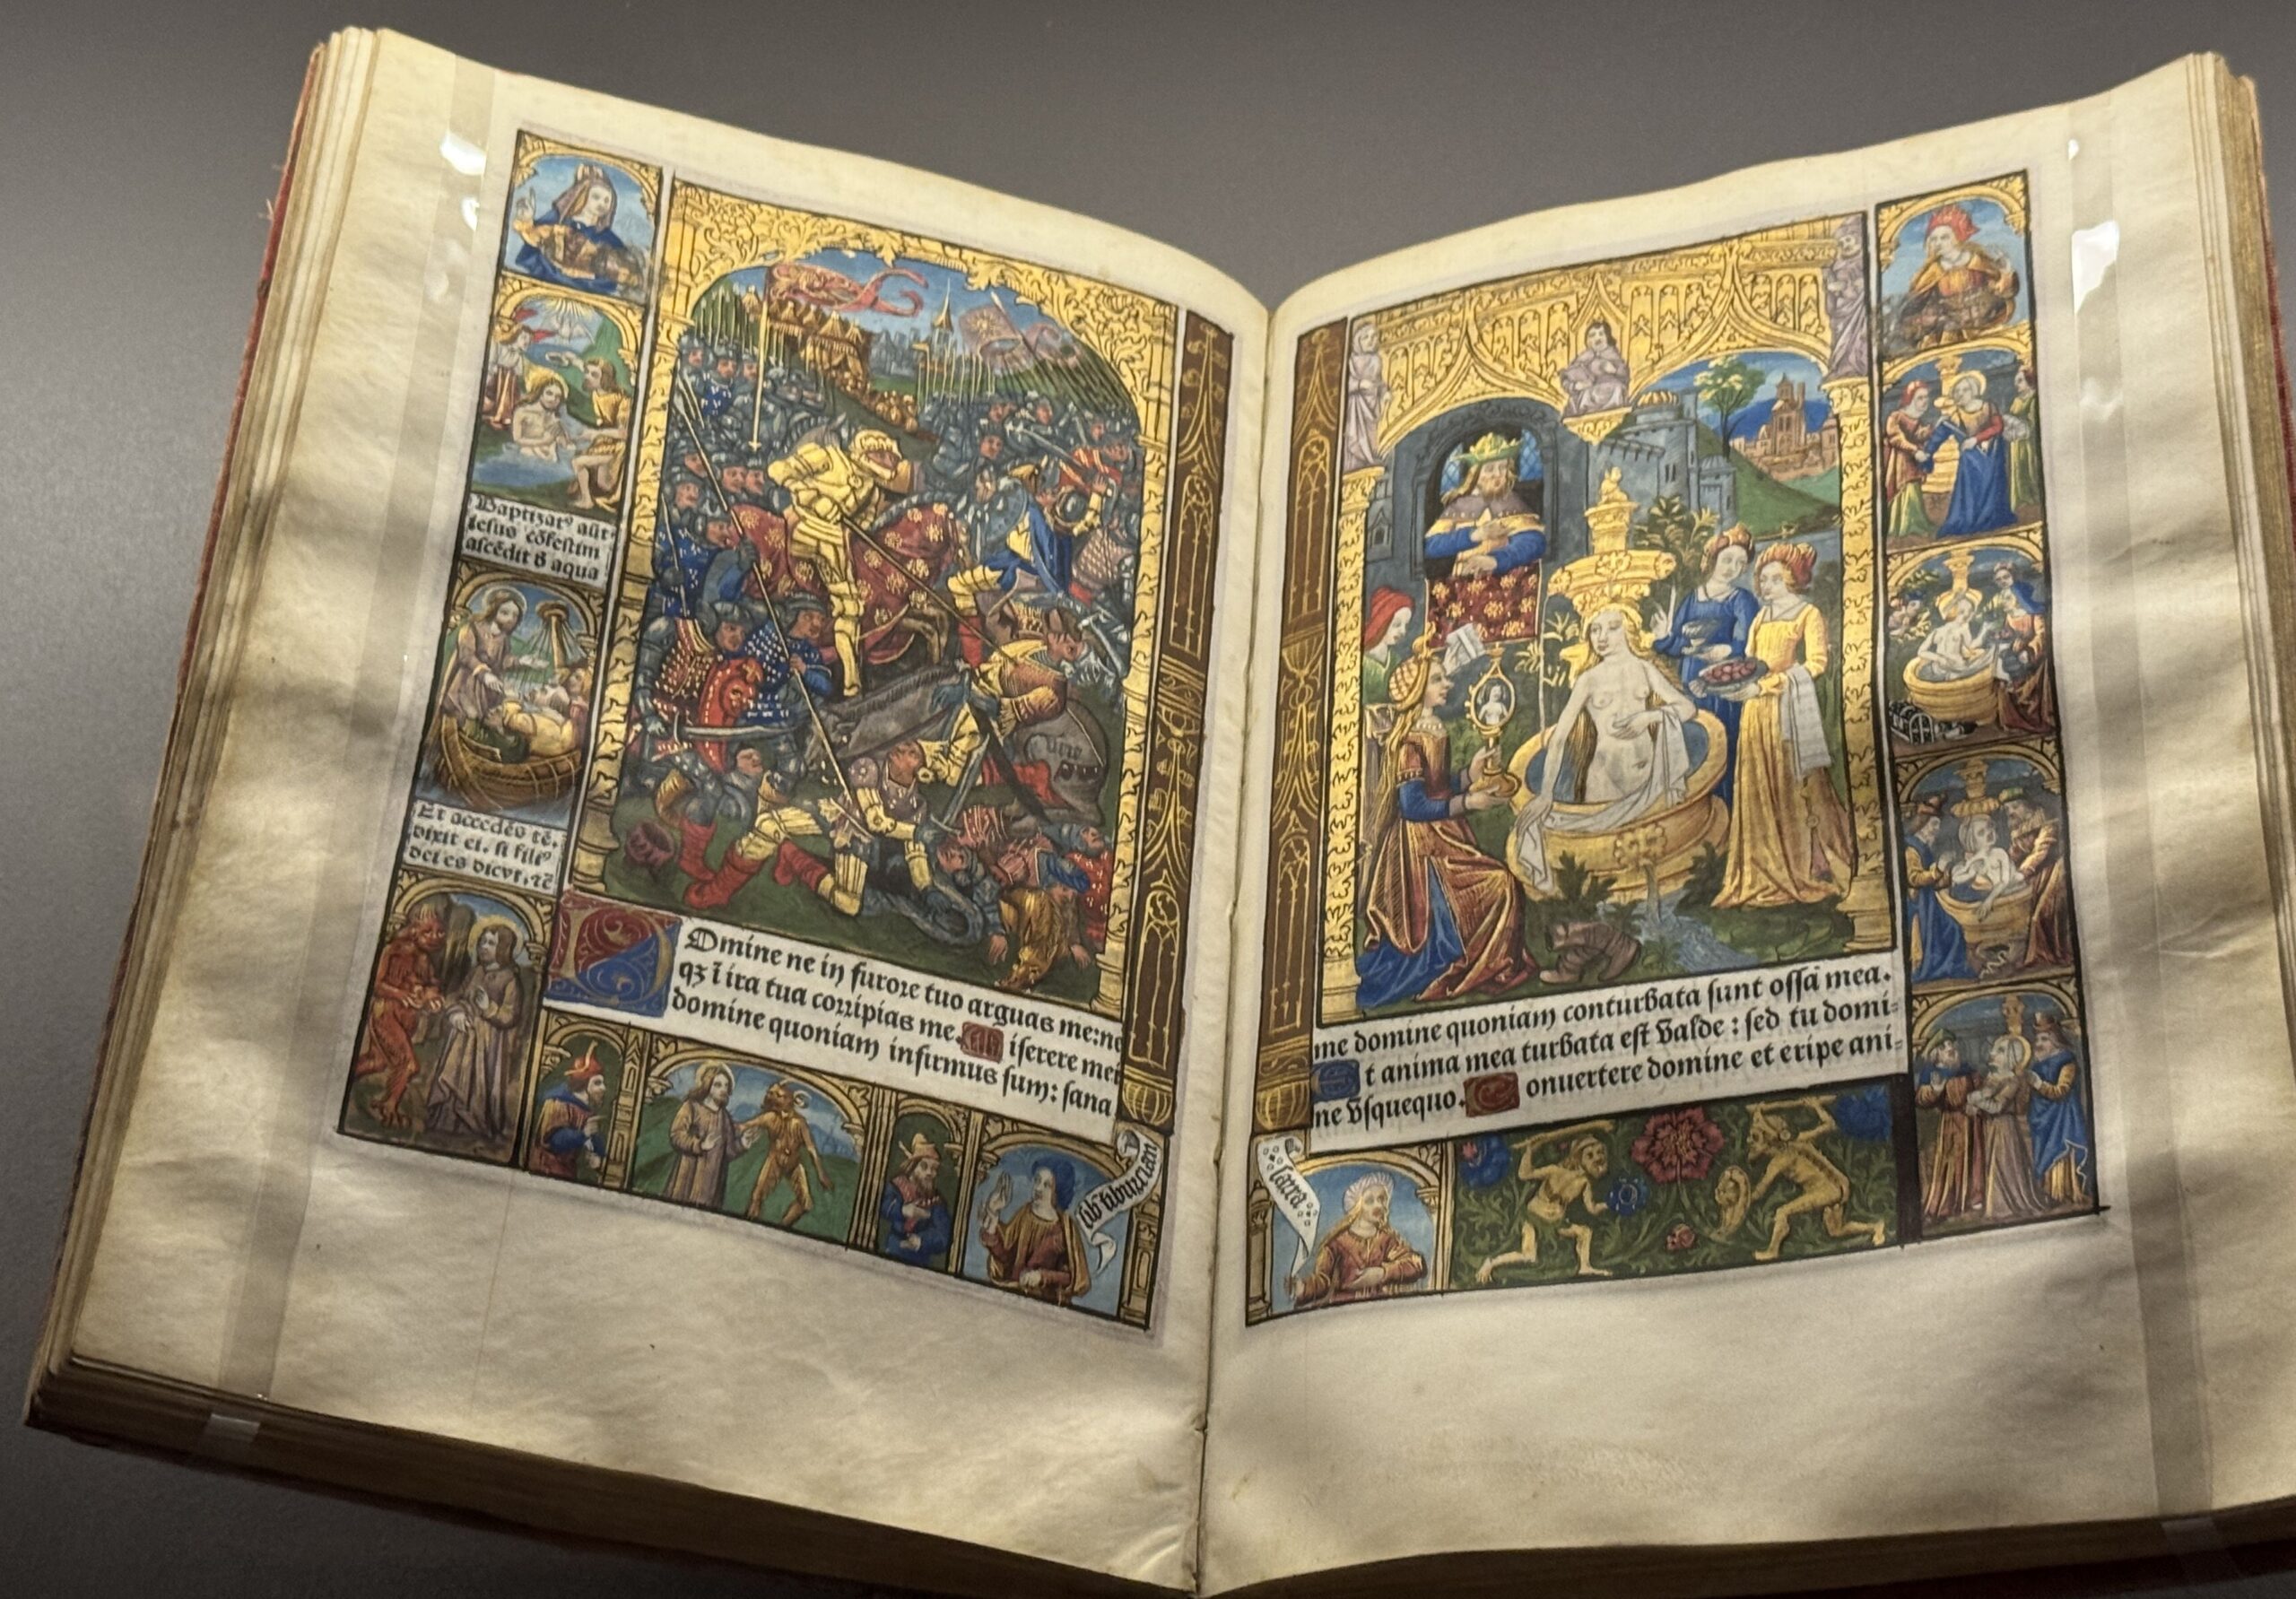 Baptizat⁹ aūt
iesus cōfestim
ascēdit d' aqua
Et accedēs tē.
dixit ei. si fili⁹
dei es
urie
DOmine ne in furore tuo arguas me:ne
qꝫ ī ira tua corripias me. Miserere mei
domine quoniam infirmus sum: sana
me domine quoniam conturbata sunt ossa mea.
Et anima mea turbata est valde : sed tu domi=
ne vsquequo. Conuertere domine et eripe ani=
sarra